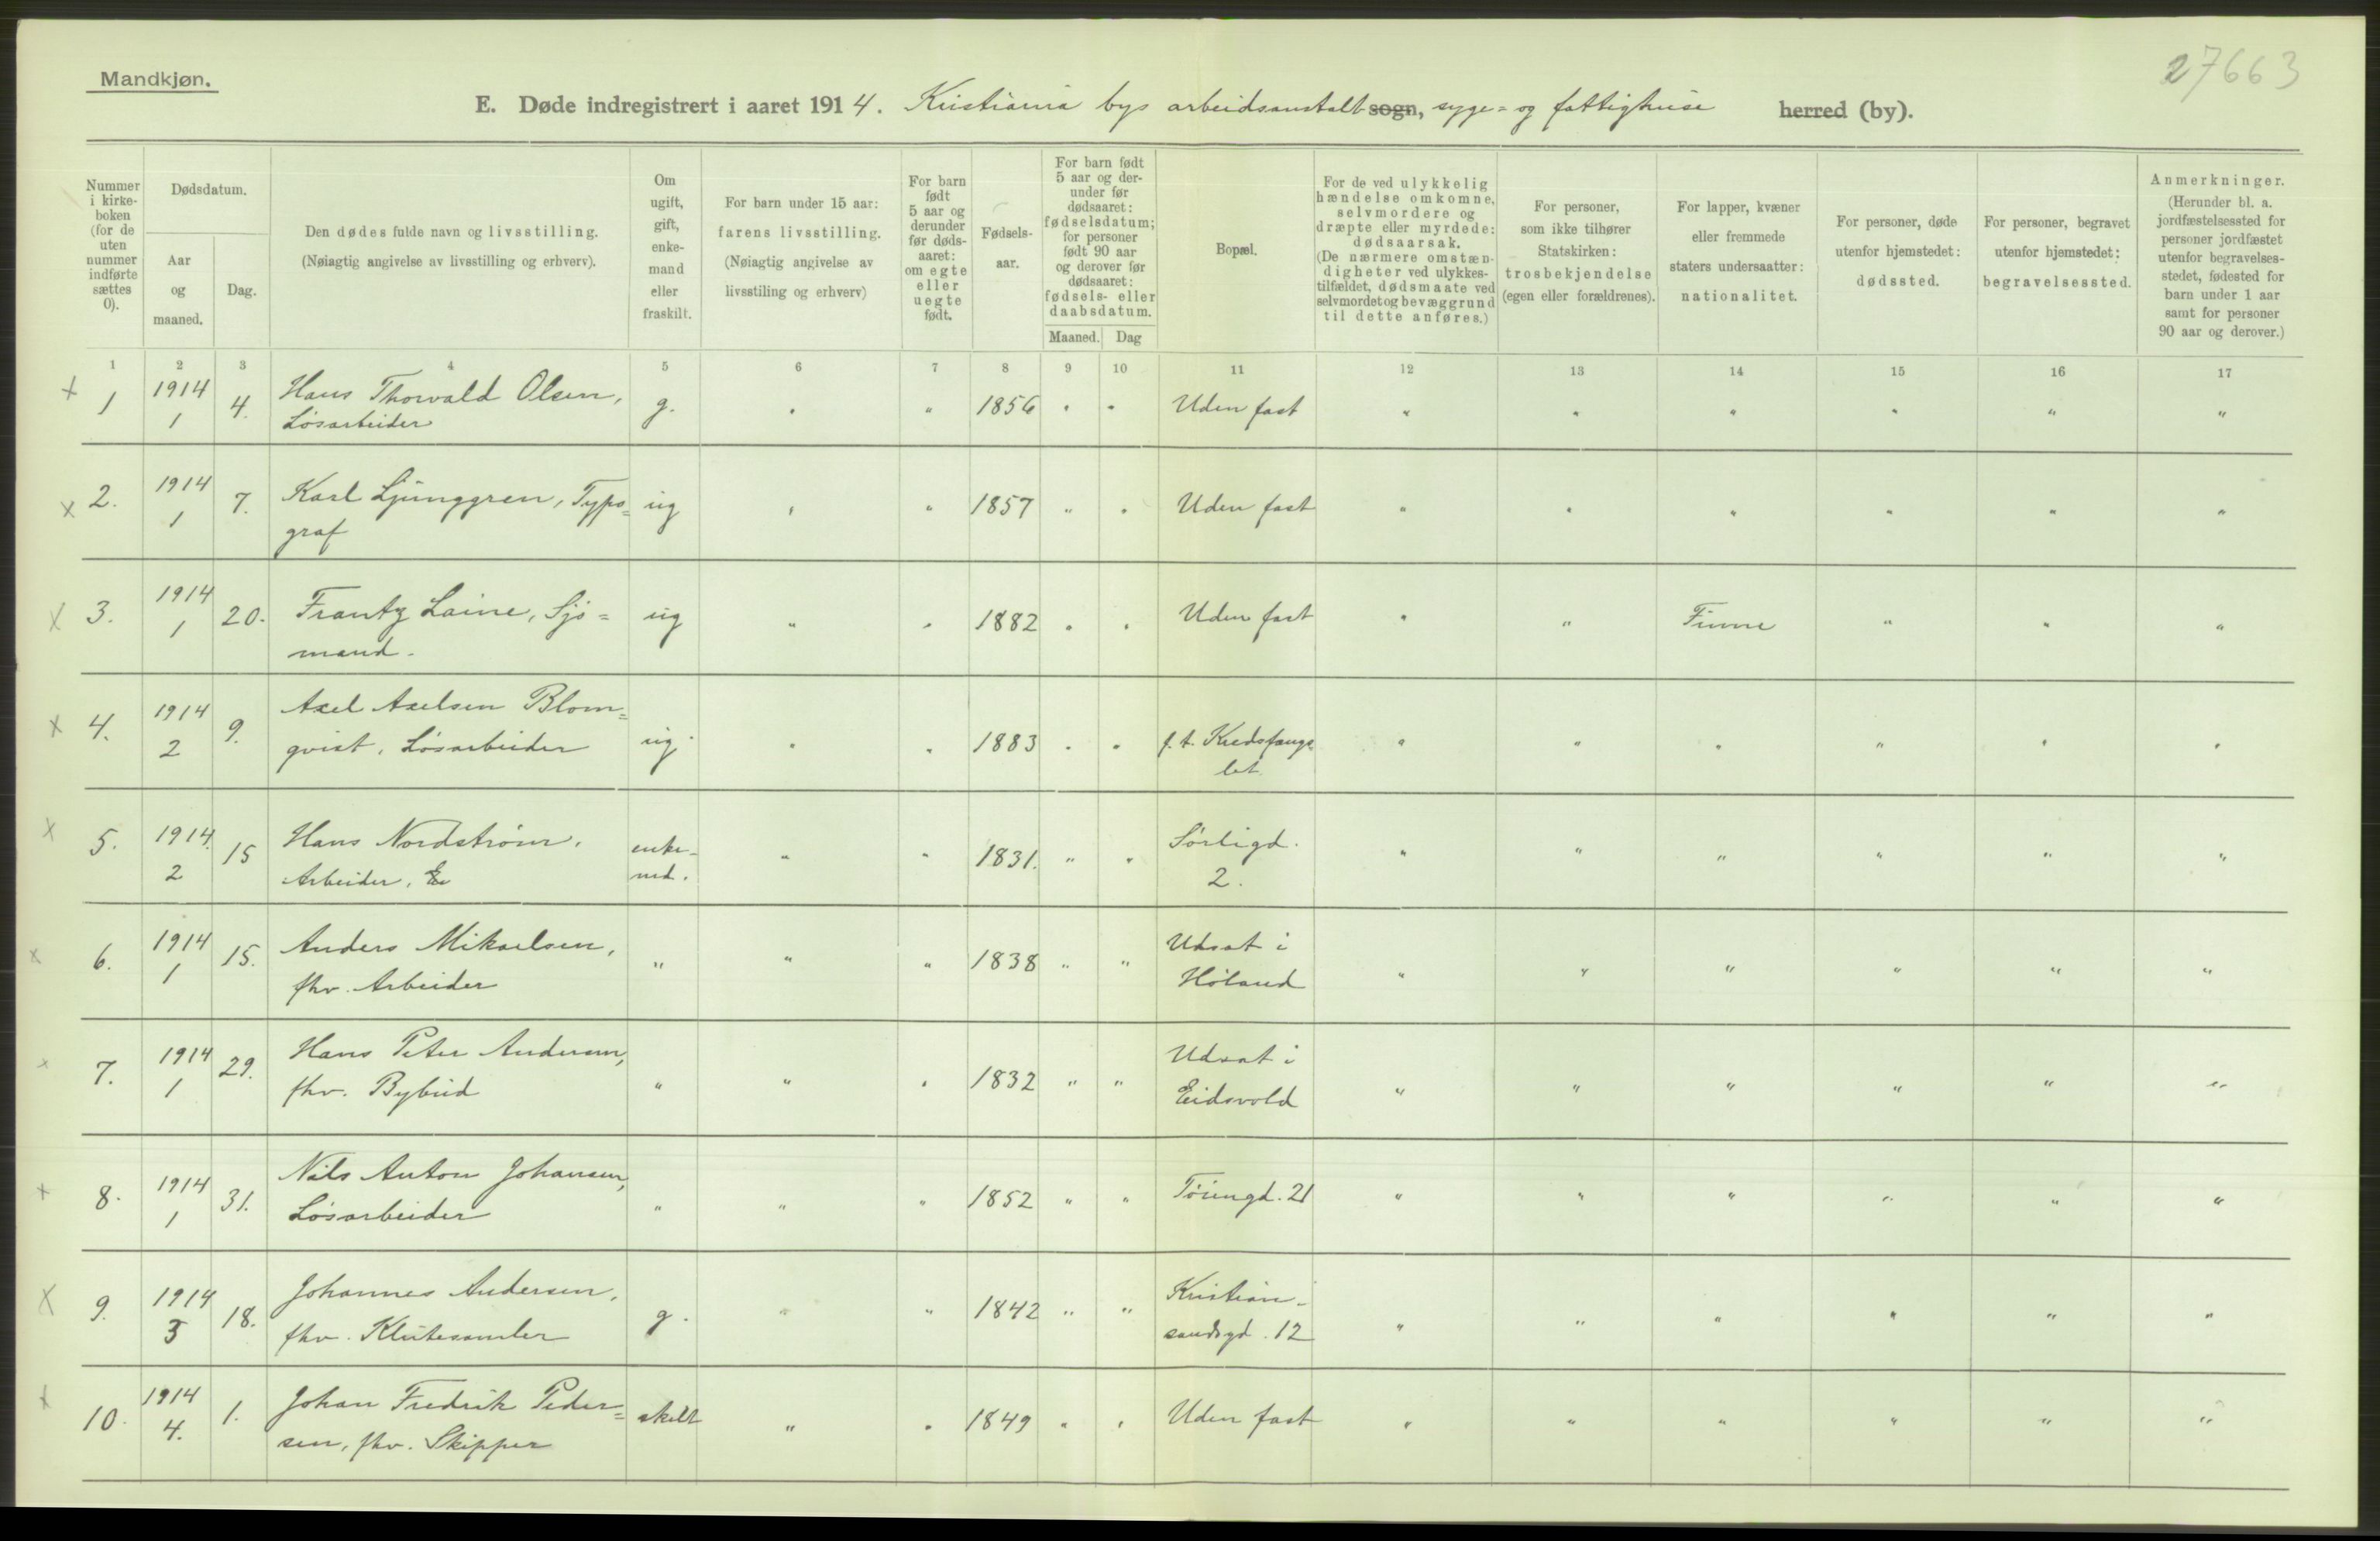 27663
Mandkjøn.
E. Døde indregistrert i aaret 1914. Kristiania bys arbeidsanstalt sogn, syge- og fattighuse herred (by).
Nummer i kirke-boken (for de uten nummer indførte sættes 0).
Dødsdatum.
Aar og maaned.
Dag.
Den dødes fulde navn og livsstilling.
(Nøiagtig angivelse av livsstilling og erhverv).
Om ugift, gift, enke-mand eller fraskilt.
For barn under 15 aar:
farens livsstilling.
(Nøiagtig angivelse av
livsstiling og erhverv)
For barn født 5 aar og derunder før døds-aaret: om egte eller uegte født.
Fødsels-aar.
For barn født 5 aar og der-under før dødsaaret: fødselsdatum; for personer født 90 aar og derover før dødsaaret: fødsels- eller daabsdatum.
Maaned. Dag
Bopæl.
For de ved ulykkelig hændelse omkomne, selvmordere og dræpte eller myrdede: dødsaarsak.
(De nærmere omstæn-digheter ved ulykkes-tilfældet, dødsmaate ved selvmordet og bevæggrund til dette anføres.)
For personer, som ikke tilhører Statskirken: trosbekjendelse (egen eller forældrenes).
For lapper, kvæner eller fremmede staters undersaatter: nationalitet.
For personer, døde utenfor hjemstedet: dødssted.
For personer, begravet utenfor hjemstedet: begravelsessted.
Anmerkninger.
(Herunder bl. a. jordfæstelsessted for personer jordfæstet utenfor begravelses-stedet, fødested for barn under 1 aar samt for personer 90 aar og derover.)
1 2 3 4 5 6 7 8 9 10 11 12 13 14 15 16 17
× 1 1914 1 4. Hans Thorvald Olsen, g. " " 1856 " " Uden fast " " " " " "
Løsarbeider
× 2. 1914 1 7. Karl Ljunggren, Typo= ug " " 1857 " " Uden fast " " " " " "
graf
× 3. 1914 1 20. Frantz Laine, Sjø= ug " " 1882 " " Uden fast " " Finne " " "
mand.
× 4. 1914 2 9. Axel Axelsen Blom= ug. " " 1883 " " f. t. Kredsfængs " " " " " "
qvist, Løsarbeider let.
× 5. 1914. 2 15 Hans Nordstrøm, enke- " " 1831. " " Sørligd. " " " " " "
Arbeider, md. 2.
× 6. 1914 1 15. Anders Mikaelsen, " " " 1838 " " Udsat i " " " " " "
fhv. Arbeider Høland
× 7. 1914 1 29. Hans Peter Andersen, " " " 1832 " " Udsat i " " " " " "
fhv. Bybud Eidsvold
× 8. 1914 1 31. Nils Anton Johansen, " " " 1852 " " Tøiengd. 21 " " " " " "
Løsarbeider
× 9. 1914 3 18. Johannes Andersen, g. " " 1842 " " Kristian- " " " " " "
fhv. Klutesamler sandsgd. 12
× 10. 1914 4. 1. Johan Fredrik Peder= skilt " " 1849 " " Uden fast " " " " " "
sen, fhv. Skipper